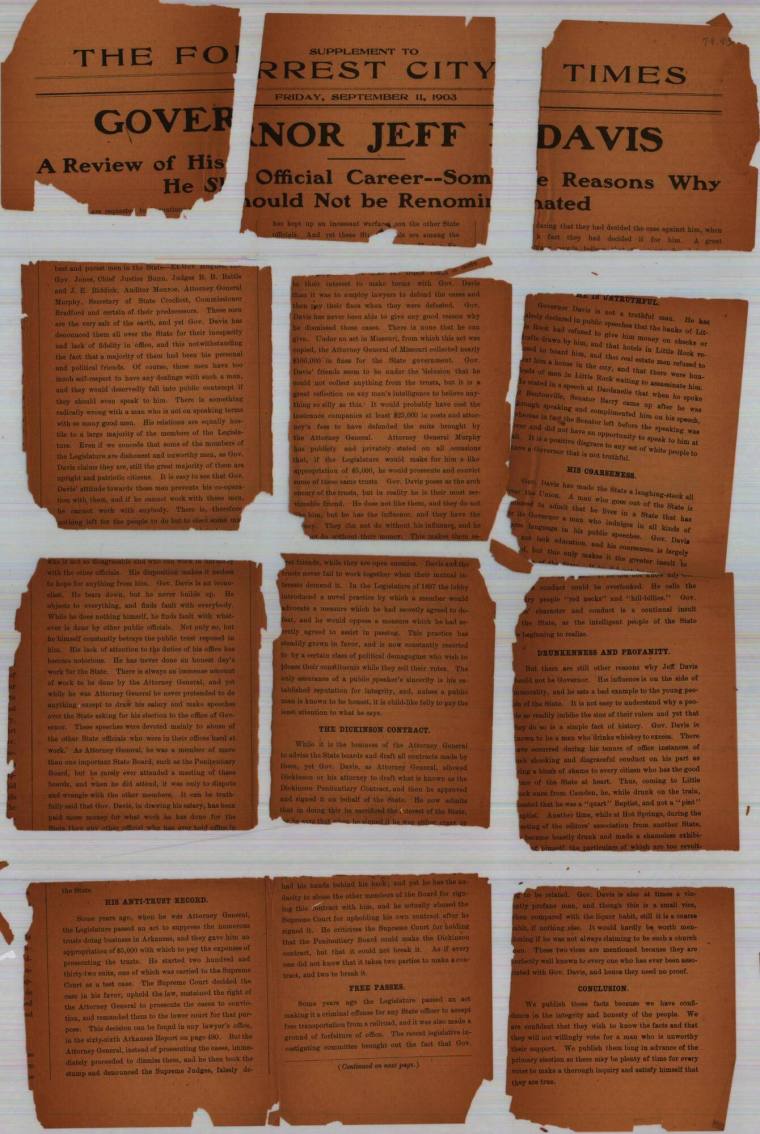 SUPPLEMENT TO
THE FORREST CITY TIMES
FRIDAY, SEPTEMBER 11, 1903
GOVERNOR JEFF DAVIS
A Review of His Official Career--Some Reasons Why
He Should Not be Renominated
has kept up an incessant warfare on the other State
officials. And yet these are among the
best and purest men in the State
Gov. Jones, Chief Justice Bunn, Judges B. B. Battle
and J. E. Riddick, Auditor Monroe, Attorney General
Murphy, Secretary of State Crockett, Commissioner
Bradford and certain of their predecessors. These men
are the very salt of the earth, and yet Gov. Davis has
denounced them all over the State for their incapacity
and lack of fidelity in office, and this notwithstanding
the fact that a majority of them had been his personal
and political friends. Of course, these men have too
much self-respect to have any dealings with such a man,
and they would deservedly fall into public contempt if
they should even speak to him. There is something
radically wrong with a man who is not on speaking terms
with so many good men. His relations are equally hos-
tile to a large majority of the members of the Legisla-
ture. Even if we concede that some of the members of
the Legislature are dishonest and unworthy men, as Gov.
Davis claims they are, still the great majority of them are
upright and patriotic citizens. It is easy to see that Gov.
Davis' attitude towards these men prevents his co-opera-
tion with them, and if he cannot work with these men,
he cannot work with anybody. There is, therefore,
nothing left for the people to do but to elect some man
who is not so disagreeable and who can work in harmony
with the other officials. His disposition makes it useless
to hope for anything from him. Gov. Davis is an icono-
clast. He tears down, but he never builds up. He
objects to everything, and finds fault with everybody.
While he does nothing himself, he finds fault with what-
ever is done by other public officials. Not only so, but
he himself constantly betrays the public trust reposed in
him. His lack of attention to the duties of his office has
become notorious. He has never done an honest day's
work for the State. There is always an immense amount
of work to be done by the Attorney General, and yet
while he was Attorney General he never pretended to do
anything except to draw his salary and make speeches
over the State asking for his election to the office of Gov-
ernor. These speeches were devoted mainly to abuse of
the other State officials who were in their offices hard at
work. As Attorney General, he was a member of more
than one important State Board, such as the Penitentiary
Board, but he rarely ever attended a meeting of these
boards, and when he did attend, it was only to dispute
and wrangle with the other members. It can be truth-
fully said that Gov. Davis, in drawing his salary, has been
paid more money for what work he has done for the
State than any other official who has ever held office in
the State.
HIS ANTI-TRUST RECORD.
Some years ago, when he was Attorney General,
the Legislature passed an act to suppress the numerous
trusts doing business in Arkansas, and they gave him an
appropriation of $5,000 with which to pay the expenses of
prosecuting the trusts. He started two hundred and
thirty-two suits, one of which was carried to the Supreme
Court as a test case. The Supreme Court decided the
case in his favor, upheld the law, sustained the right of
the Attorney General to prosecute the cases to convic-
tion, and remanded them to the lower court for that pur-
pose. This decision can be found in any lawyer's office,
in the sixty-sixth Arkansas Report on page 480. But the
Attorney General, instead of prosecuting the cases, imme-
diately proceeded to dismiss them, and he then took the
stump and denounced the Supreme Judges, falsely de-
claring that they had decided the case against him, when
in fact they had decided it for him. A great
be their interest to make terms with Gov. Davis
than it was to employ lawyers to defend the cases and
then pay their fines when they were defeated. Gov.
Davis has never been able to give any good reason why
he dismissed those cases. There is none that he can
give. Under an act in Missouri, from which this act was
copied, the Attorney General of Missouri collected nearly
$100,000 in fines for the State government. Gov.
Davis' friends seem to be under the delusion that he
could not collect anything from the trusts, but it is a
great reflection on any man's intelligence to believe any-
thing so silly as this. It would probably have cost the
insurance companies at least $25,000 in costs and attor-
ney's fees to have defended the suits brought by
the Attorney General. Attorney General Murphy
has publicly and privately stated on all occasions
that, if the Legislature would make for him a like
appropriation of $5,000, he would prosecute and convict
some of these same trusts. Gov. Davis poses as the arch
enemy of the trusts, but in reality he is their most ser-
viceable friend. He does not like them, and they do not
him, but he has the influence, and they have the
They can not do without his influence, and he
do without their money. This makes them se-
cret friends, while they are open enemies. Davis and the
trusts never fail to work together when their mutual in-
terests demand it. In the Legislature of 1897 the lobby
introduced a novel practice by which a member would
advocate a measure which he had secretly agreed to de-
feat, and he would oppose a measure which he had se-
cretly agreed to assist in passing. This practice has
steadily grown in favor, and is now constantly resorted
to by a certain class of political demagogues who wish to
please their constituents while they sell their votes. The
only assurance of a public speaker's sincerity is his es-
tablished reputation for integrity, and, unless a public
man is known to be honest, it is child-like folly to pay the
least attention to what he says.
THE DICKINSON CONTRACT.
While it is the business of the Attorney General
to advise the State boards and draft all contracts made by
them, yet Gov. Davis, as Attorney General, allowed
Dickinson or his attorney to draft what is known as the
Dickinson Penitentiary Contract, and then he approved
and signed it on behalf of the State. He now admits
that in doing this he sacrificed the interest of the State.
had his hands behind his back; and yet he has the au-
dacity to abuse the other members of the Board for sign-
ing this contract with him, and he actually abused the
Supreme Court for upholding his own contract after he
signed it. He criticises the Supreme Court for holding
that the Penitentiary Board could make the Dickinson
contract, but that it could not break it. As if every
one did not know that it takes two parties to make a con-
tract, and two to break it.
FREE PASSES.
Some years ago the Legislature passed an act
making it a criminal offense for any State officer to accept
free transportation from a railroad, and it was also made a
ground of forfeiture of office. The recent legislative in-
vestigating committee brought out the fact that Gov.
(Continued on next page.)
HE IS UNTRUTHFUL.
Governor Davis is not a truthful man. He has
declared in public speeches that the banks of Lit-
Rock had refused to give him money on checks or
drafts drawn by him, and that hotels in Little Rock re-
fused to board him, and that real estate men refused to
him a house in the city, and that there were hun-
dreds of men in Little Rock waiting to assassinate him.
He stated in a speech at Dardanelle that when he spoke
Bentonville, Senator Berry came up after he was
through speaking and complimented him on his speech,
whereas in fact the Senator left before the speaking was
over and did not have an opportunity to speak to him at
all. It is a positive disgrace to any set of white people to
have a Governor that is not truthful.
HIS COARSENESS.
Gov. Davis has made the State a laughing-stock all
over the Union. A man who goes out of the State is
ashamed to admit that he lives in a State that has
its Governor a man who indulges in all kinds of
language in his public speeches. Gov. Davis
not lack education, and his coarseness is largely
but this only makes it the greater insult
conduct could be overlooked. He calls the
people "red necks" and "hill-billies." Gov.
character and conduct is a continual insult
the State, as the intelligent people of the State
beginning to realize.
DRUNKENNESS AND PROFANITY.
But there are still other reasons why Jeff Davis
should not be Governor. His influence is on the side of
immorality, and he sets a bad example to the young peo-
ple of the State. It is not easy to understand why a peo-
ple so readily imbibe the sins of their rulers and yet that
they do so is a simple fact of history. Gov. Davis is
known to be a man who drinks whiskey to excess. There
have occurred during his tenure of office instances of
such shocking and disgraceful conduct on his part as
bring a blush of shame to every citizen who has the good
name of the State at heart. Thus, coming to Little
Rock once from Camden, he, while drunk on the train,
boasted that he was a "quart" Baptist, and not a "pint"
Baptist. Another time, while at Hot Springs, during the
meeting of the editors' association from another State,
became beastly drunk and made a shameless exhibi-
of himself, the particulars of which are too revolt-
ing to be related. Gov. Davis is also at times a vio-
lently profane man, and though this is a small vice,
when compared with the liquor habit, still it is a coarse
habit, if nothing else. It would hardly be worth men-
tioning if he was not always claiming to be such a church
These two vices are mentioned because they are
perfectly well known to every one who has ever been asso-
ciated with Gov. Davis, and hence they need no proof.
CONCLUSION.
We publish these facts because we have confi-
dence in the integrity and honesty of the people. We
are confident that they wish to know the facts and that
they will not willingly vote for a man who is unworthy
their support. We publish them long in advance of the
primary election so there may be plenty of time for every
voter to make a thorough inquiry and satisfy himself that
they are true.